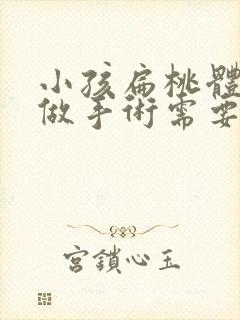 小孩扁桃體
做手術需要
宮鎖心玉